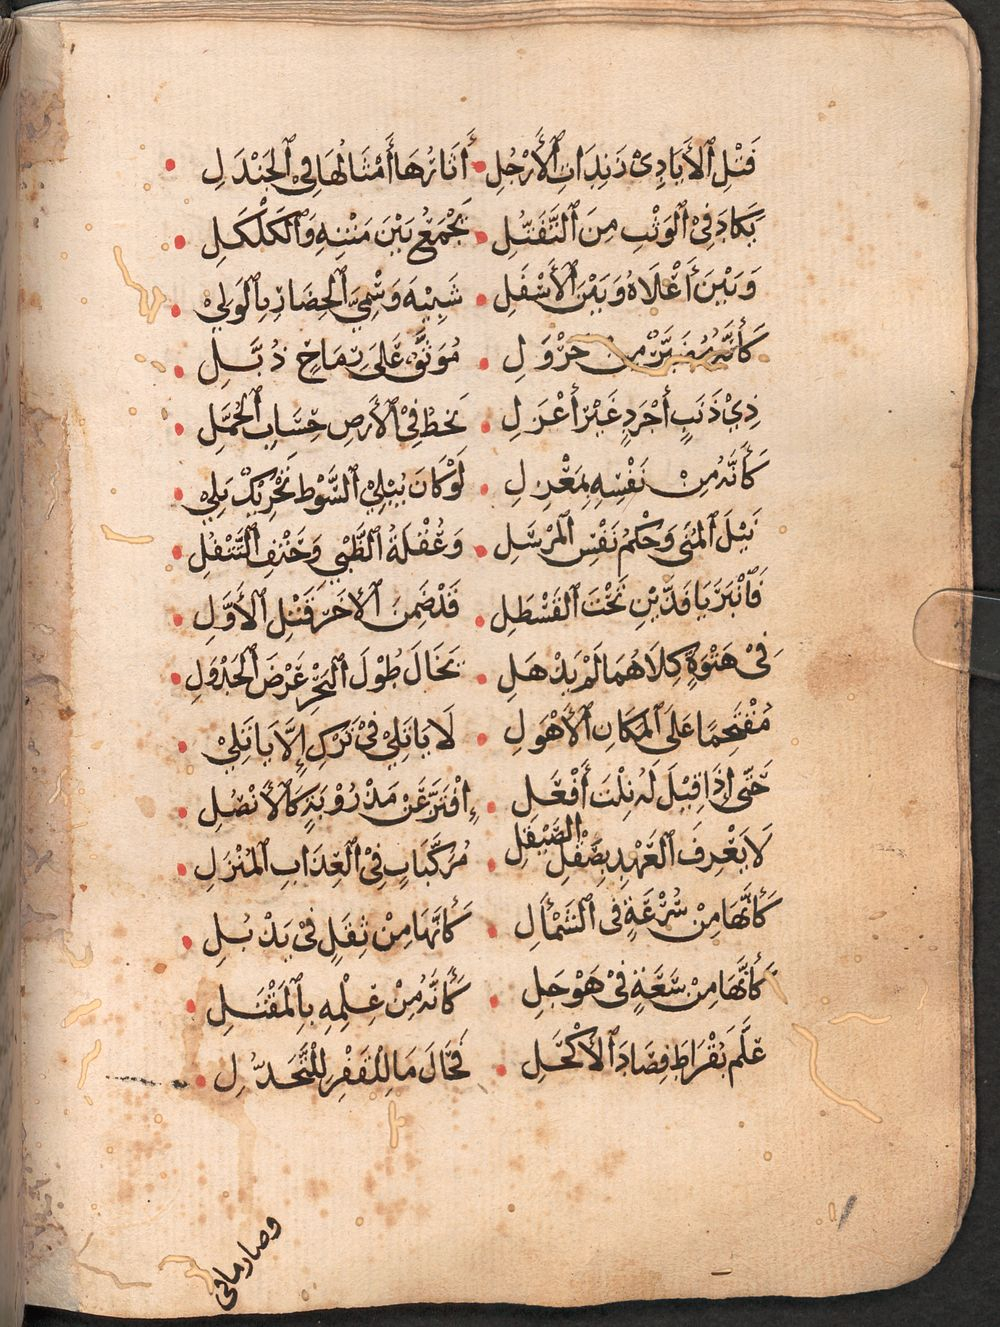 فَتْلِ ٱلأَيَادِىْ رَبِدَاتِ ٱلْأَرْجُلِ • أَثَارُهَا أَمْثَالُهَا فِىْ ٱلْجَنْدَلِ •
يَكَادُ فِىْ ٱلْوَثْبِ مِنَ ٱلتَّفَتُّلِ • يَجْمَعُ بَيْنَ مَتْنِهِ وَٱلْكَلْكَلِ •
وَبَيْنَ أَعْلَاهُ وَبَيْنَ ٱلْأَسْفَلِ • شَبِيْهَ وَسْمِيِّ ٱلْحِضَارِ بِٱلْوَلِيْ •
كَأَنَّهُ مُضَبَّرٌ مِنْ جَرْوَلِ • مُوَثَّقٌ عَلَى رِمَاحٍ ذُبَّلِ •
ذِىْ ذَنَبٍ أَجْرَدٍ غَيْرَ أَعْزَلِ • يَخطُّ فِىْ ٱلأَرضِ حِسَابَ ٱلْجُمَّلِ •
كَأَنَّهُ مِنْ نَفْسِهِ بِمَعْزِلِ • لَوْ كَانَ يُبْلِيْ ٱلسَّوْطَ تَحْرِيْكٌ بَلِيْ •
نَيْلَ ٱلْمُنَى وَحُكْمُ نَفْسِ ٱلْمُرْسَلِ • وَعُقْلَةُ ٱلظَّبْيِ وَحَتْفُ ٱلتَّتْفُلِ •
فَٱنْبَرَيَا فَذَّيْنِ تَحْتَ ٱلْقَسْطَلِ • قَدْ ضَمِنَ ٱلأَخَرُ قَتْلَ ٱلْأَوَّلِ •
فِىْ هَبْوَةٍ كِلَاهُمَا لَمْ يَذْهَلِ • يَخَالُ طُوْلَ ٱلْبَحْرِ عَرْضَ ٱلْجَدْوَلِ •
مُقْتَحِمًا عَلَى ٱلْمَكَانِ ٱلْأَهْوَلِ • لَا يَأْتَلِيْ فِىْ تَرْكِ إِلَّا يَأْتَلِيْ •
حَتَّى إِذَا قِيْلَ لَهُ نِلْتَ أَفْعَلِ • إِفْتَرَّ عَنْ مَذْرُوْبَةٍ كَٱلْأَنْصُلِ •
لَا يَعْرِفُ ٱلْعَهْدَ بِصَقْلِ ٱلصَّيْقَلِ • مُرَكَّبَاتٍ فِىْ ٱلْعَذَابِ ٱلْمُنْزَلِ •
كَأَنَّهَا مِنْ سُرْعَةٍ فِى ٱلشَّمْأَلِ • كَأَنَّهَا مِنْ ثِقَلٍ فِىْ يَذْبُلِ •
كَأَنَّهَا مِنْ سَعَةٍ فِىْ هَوْجَلِ • كَأَنَّهُ مِنْ عِلْمِهِ بِٱلْمَقْتَلِ •
عَلَّمَ بُقْرَاطَ فِصَادَ ٱلأَكْحَلِ • فَحَالَ مَا لِلْقَفْزِ لِلتَّجَدُّلِ •
وصار مافى